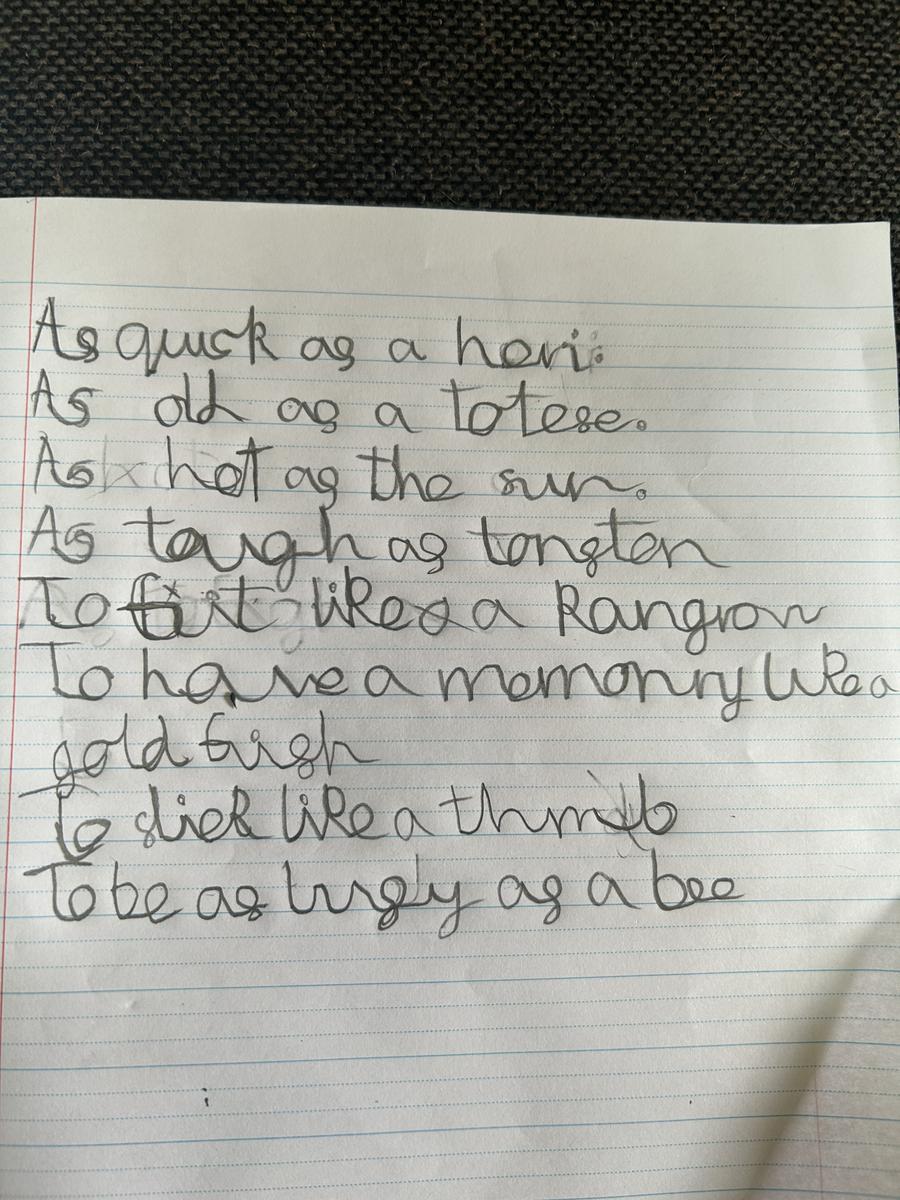 As quick as a hori.
As old as a totese.
As hot as the sun.
As tough as tongton
To fit like a Kangrow
To have a memonry like a
gold fish
To stick like a thmb
To be as busy as a bee